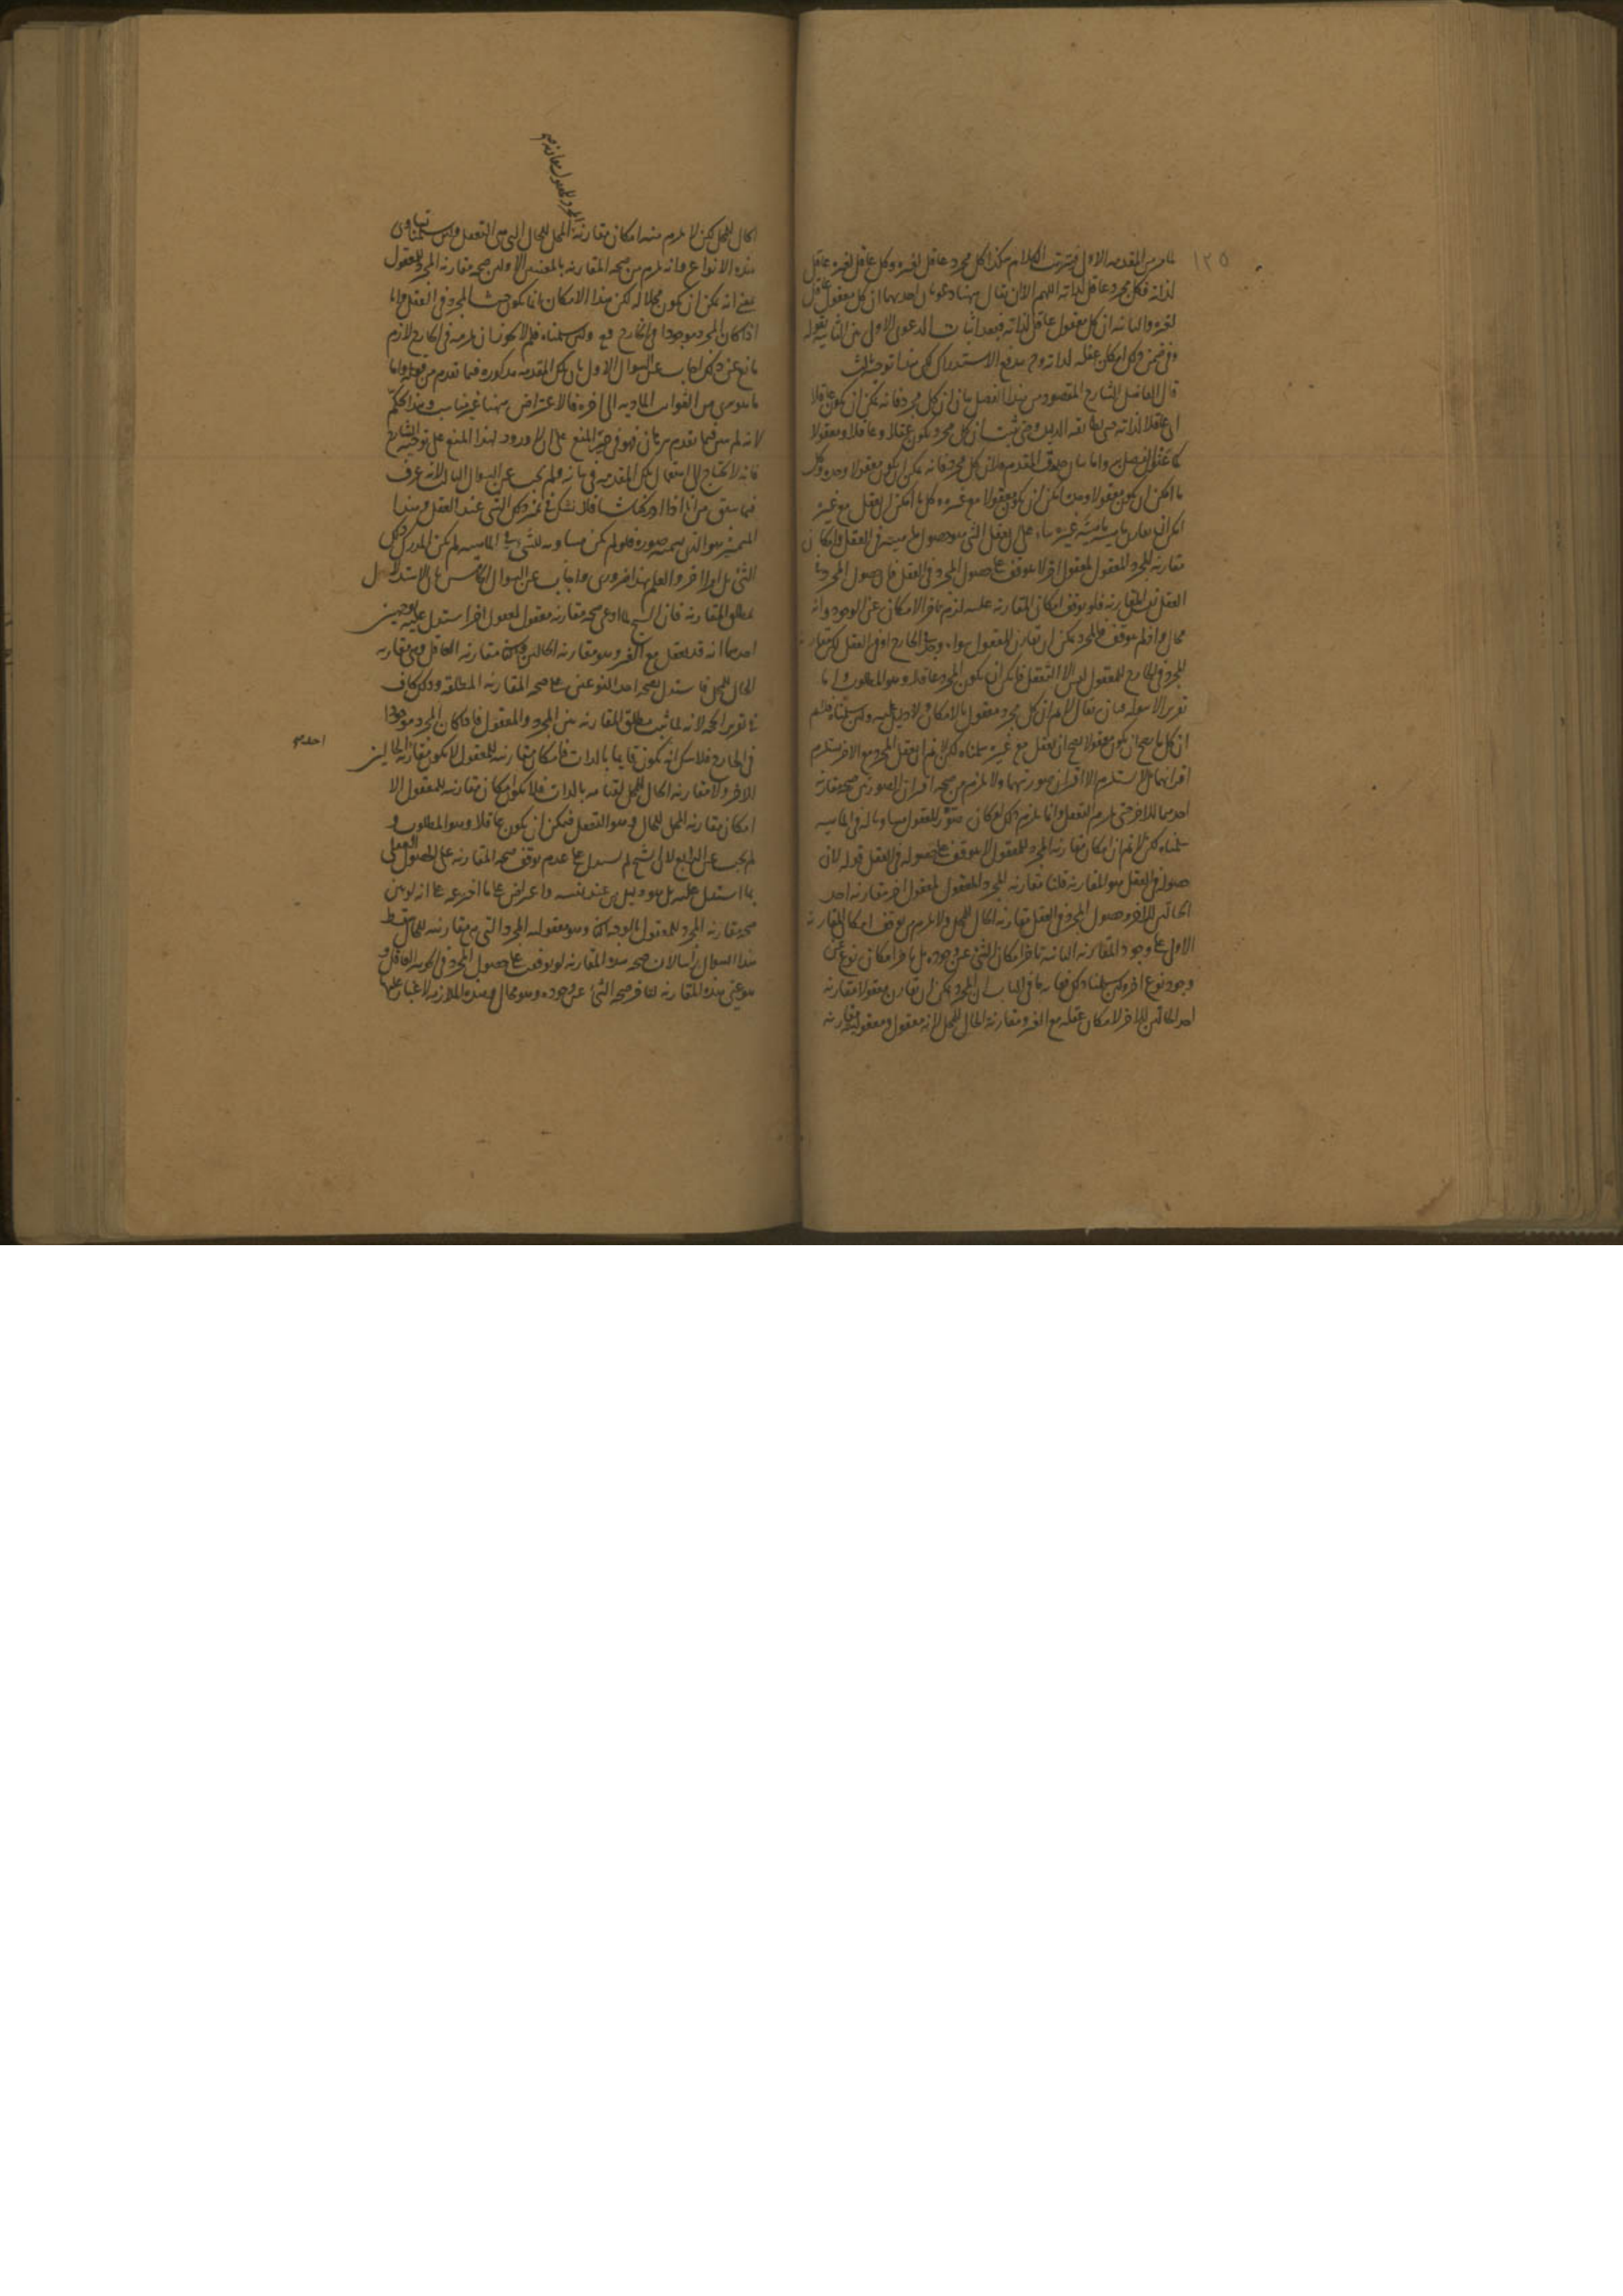 ١٢٥
من المقدمه الاولى فترتيب الكلام هكذا كل مجرد عاقل لغيره وكل عاقل لغيره عاقل
لذاته فكل مجرد عاقل لذاته اللهم الا ان يقال ههنا دعويان احديهما ان كل معقول عاقل
لغيره والثانيه ان كل معقول عاقل لذاته فبعد اثبات الدعوى الاولى بين الثانيه بقوله
وفي ضمن ذلك امكان عقله لذاته وح يندفع الاستدراك لكن هذا توجيه ثالث
قال الفاضل الشارح المقصود من هذا الفصل بيان ان كل مجرد فانه يمكن ان يكون عاقلا
اي عاقلا لذاته حتى ثبت ان كل مجرد يكون عقلا وعاقلا ومعقولا
المقدم فلان كل مجرد فانه يمكن ان يكون معقولا وحده وكل
ما امكن ان يكون معقولا وحده امكن ان يكون معقولا مع غيره وكل ما امكن ان يعقل مع غيره
امكن ان يقارن ماهيته ماهية غيره بناء على ان تعقل الشي هو حصول ماهيته في العقل وامكان
مقارنه المجرد المعقول لمعقول اخر لا يتوقف على حصول المجرد في العقل فان حصول المجرد في
العقل نفس المقارنه فلو توقف امكان المقارنه عليه لزم تاخر الامكان عن الوجود وانه
محال واذا لم يتوقف فالمجرد يمكن ان يقارن المعقول سواء وجد في الخارج او في العقل لكن مقارنه
المجرد في الخارج للمعقول ليس الا التعقل فامكن ان يكون المجرد عاقلا وهو المطلوب واما
تقرير الاسوله فبان يقال لا نم ان كل مجرد معقول بالامكان ولا دليل عليه ولئن سلمناه فلم
ان كل ما يصح ان يكون معقولا يصح ان يعقل مع غيره سلمناه لكن لا نم ان تعقل المجرد مع الاخر يستلزم
اقترانهما بل لا يستلزم الا اقتران صورتيهما ولا يلزم من صحه اقتران الصورتين صحه مقارنه
احدهما للاخر حتى يلزم التعقل وانما يلزم ذلك لو كان تصور المعقول مساويا له في الماهيه
سلمناه لكن لا نم ان امكان مقارنه المجرد للمعقول لا يتوقف على حصوله في العقل قوله لان
حصوله في العقل هو المقارنه قلنا مقارنه المجرد المعقول لمعقول اخر مقارنه احد
الحالين للاخر وحصول المجرد في العقل مقارنه الحال للمحل ولا يلزم من توقف امكان المقارنه
الاولى على وجود المقارنه الثانيه تاخر امكان الشي عن وجوده بل تاخر امكان نوع عن
وجود نوع اخر ولئن سلمنا ذلك فغايه ما في الباب ان المجرد يمكن ان يقارن معقولا مقارنه
احد الحالين للاخر لامكان عقله مع الغير ومقارنه الحال للمحل لانه معقول ومعقوليته مقارنه
الحال للمحل لكن لا يلزم منه امكان مقارنة المحل للحال التي هي التعقل ولئن سلمنا تساوى
هذه الانواع وانه يلزم من صحه المقارنه بالمعنيين الاولين صحه مقارنه المجرد للمعقول
بمعنى انه يمكن ان يكون محلا له لكن هذا الامكان انما يكون حيث المجرد في العقل واما
اذا كان المجرد موجودا في الخارج فمم ولئن سلمناه فلم لا يكون ان يلزمه في الخارج لازم
مانع عن ذلك اجاب عن السوال الاول بان تلك المقدمه مذكوره فيما تقدم من قوله واما
ما هو برى من الشوائب الماديه الى اخره فالاعتراض ههنا غير مناسب وهذا تحكم
لانه لم يبين فيما تقدم ببرهان فهو في حيز المنع على ان لا ورود لهذا المنع على توجيه الشارح
فانه لا يحتاج الى استعمال تلك المقدمه في بيانه ولم يجب عن السوال الثالث لانه عرف
فيما سبق من انا اذا ادركنا شيا فلا نشك في تميز ذلك الشي عند العقل وهذا
المتميز هو الذي نسميه صوره فلو لم يكن مساويه للشي في الماهيه لم يكن المدرك ذلك
الشي بل امرا اخر والعلم بهذا ضرورى واجاب عن السوال الخامس بان الاستدلال
بمطلق المقارنه فان الشيخ لما ادعى صحه مقارنه معقول لمعقول اخر استدل عليه بوجهين
احدهما انه قد يعقل مع الغير وهو مقارنه الحالين مقارنه العاقل وهي مقارنه
الحال للمحل فاستدل بصحه احد النوعين على صحه المقارنه المطلقه وذلك كاف
في تقرير الحجه لانه لما ثبت مطلق المقارنه بين المجرد والمعقول فاذا كان المجرد موجودا
في الخارج فلا شك انه يكون قايما بالذات فامكان مقارنته للمعقول لا يكون مقارنة الحالين
الاخر ولا مقارنه الحال للمحل لقيامه بالذات فلا يكون امكان مقارنته للمعقول الا
امكان مقارنه المحل للحال وهو التعقل فيمكن ان يكون عاقلا وهو المطلوب و
لم يجب عن الرابع لان الشيخ لم يستدل على عدم توقف صحه المقارنه على الحصول العقلى
بما استدل عليه بل هو دليل من عند نفسه واعتراض على ما اخترعه على انه لو بين
صحه مقارنه المجرد للمعقول بالوجه الثاني وهو معقوليه المجرد التي هي مقارنته للحال سقط
هذا السوال راسا لان صحه هذه المقارنه لو توقفت على حصول المجرد في الجوهر العاقل و
هو عين هذه المقارنه لتاخر صحه الشئ عن وجوده وهو محال وهذه الملازمه لا غبار عليها